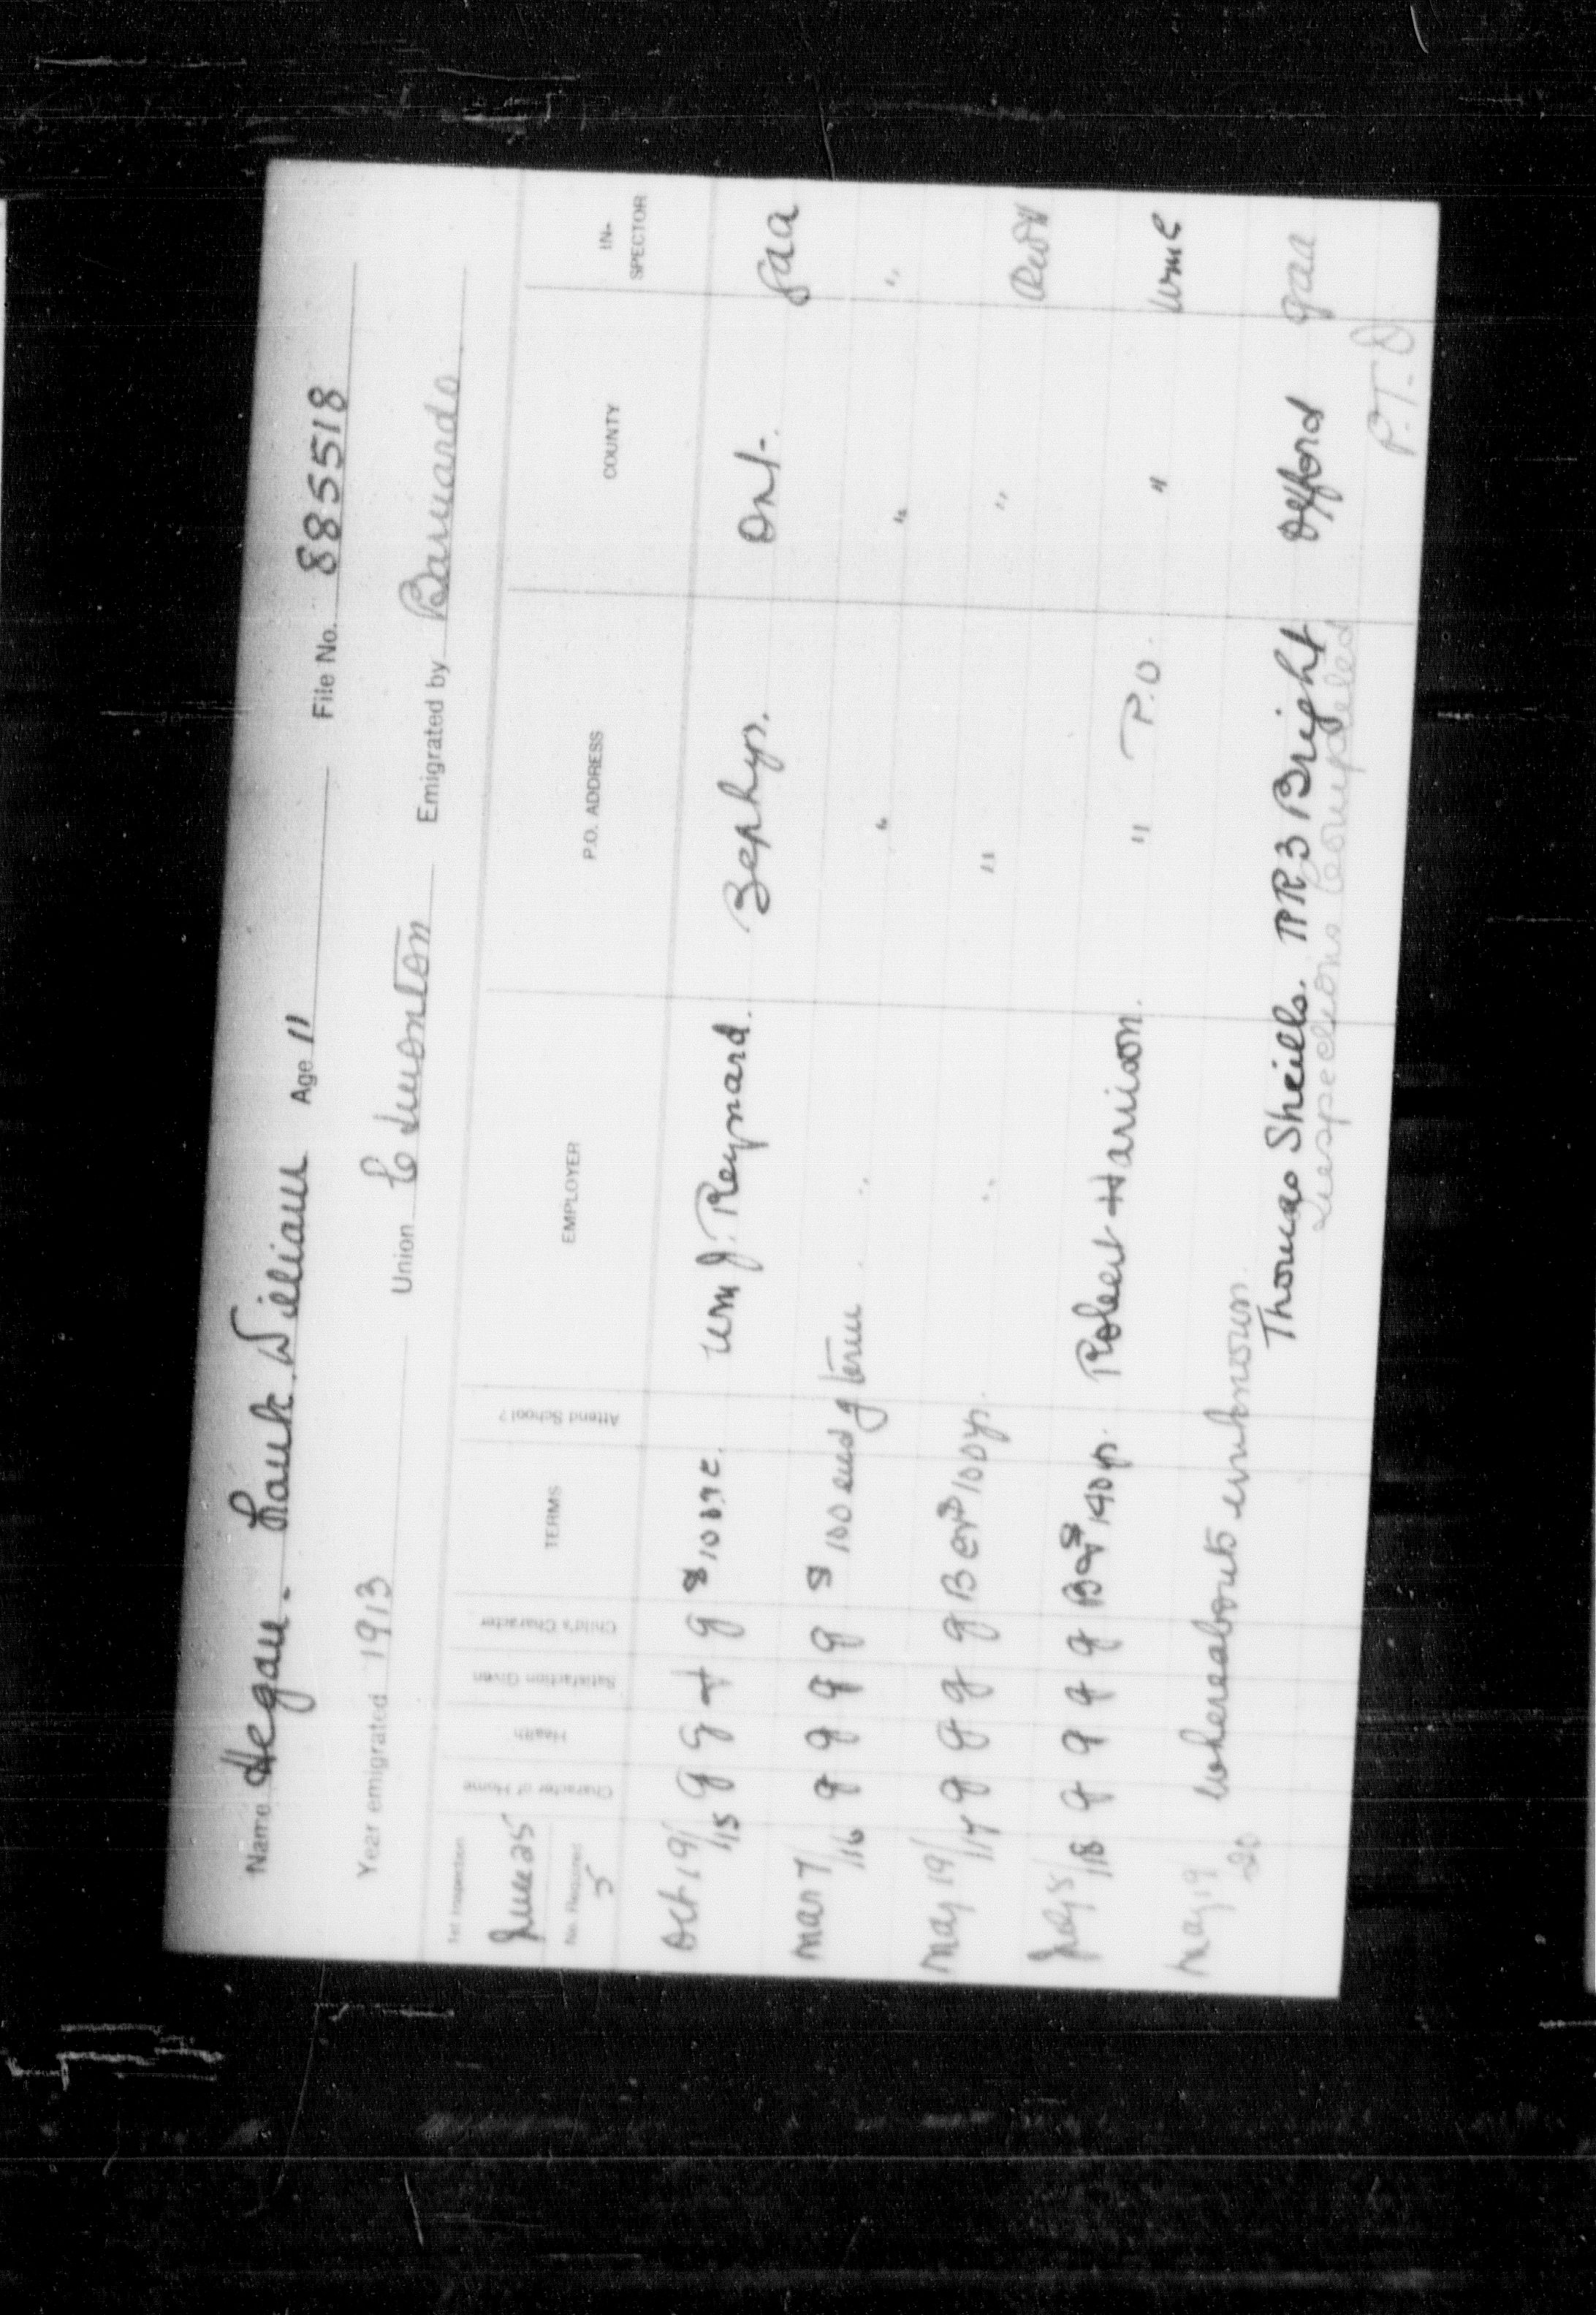 Name Hegan. Frank William Age 11 File No. 885518
Year emigrated 1913 Union Edmonton Emigrated by Barnardo
1st Inspection Character of Home Health Satisfaction Given Child's Character TERMS Attend School? EMPLOYER P.O. ADDRESS COUNTY IN-SPECTOR
June 25
No. Required
5
Oct 19/15 g g + g $ 100 Wm J. Reynard. Zephyr. Ont. gaa
Mar 7/16 g g g g $ 100 end of term " " " "
May 19/17 g g g g B 100 yr. " " "
July 8/18 g g g g B 140 yr. Robert Harrison. " P.O. " WME
May 19 20 Whereabouts unknown.
Thomas Sheills. RR 3 Bright Oxford gaa
Inspections completed
P.T.O